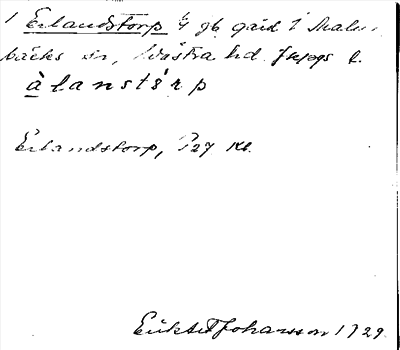 1 Erlandstorp 1/4 gb. gård i Malm-
bäcks sn, Västra hd. Jkpgs l.
àlanstŏrp
Erlandstorp, P27 Kl.
Johansson 1929.